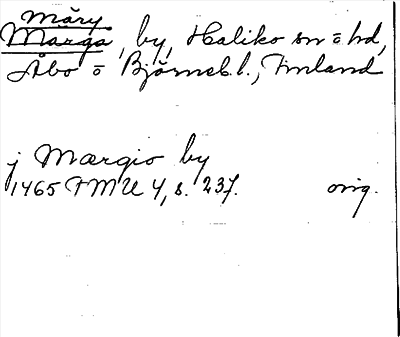 Märy
Marga, by, Haliko sn o hd,
Åbo o Björneb. l., Finland
j Mærgio by
1465 FMU 4, s. 237. orig.